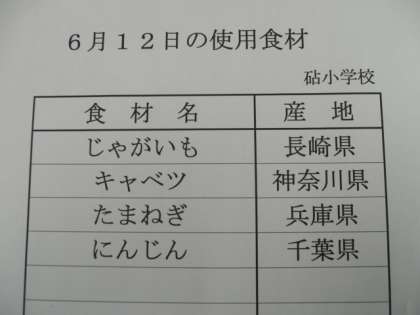 6月12日の使用食材
砧小学校
食 材 名 産 地
じゃがいも 長崎県
キャベツ 神奈川県
たまねぎ 兵庫県
にんじん 千葉県